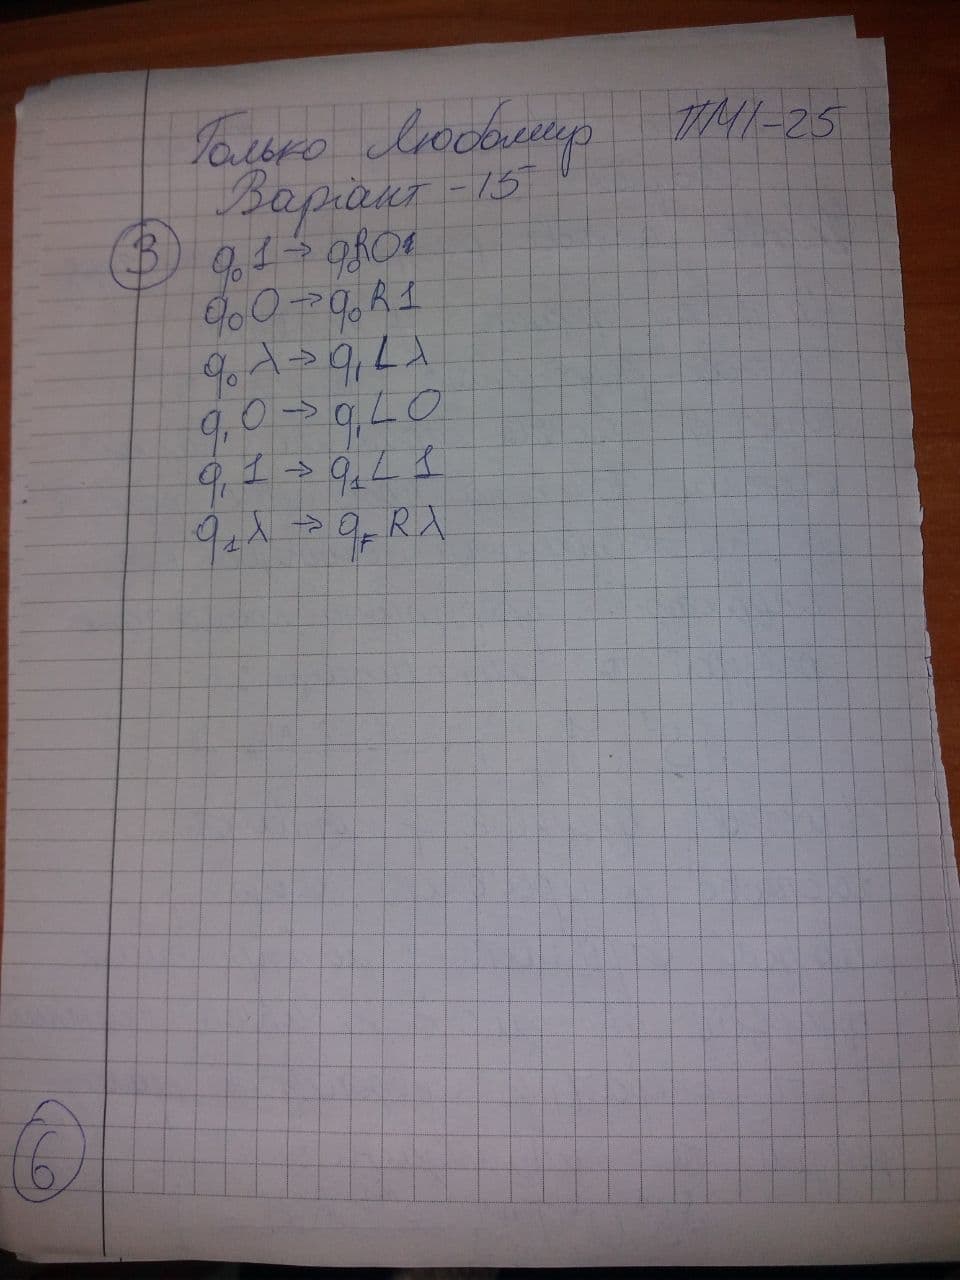 Только Любомир ПМІ-25
Варіант - 15
3
q₀1 → q₀R0
q₀0 → q₀R1
q₀λ → q₁Lλ
q₁0 → q₁L0
q₁1 → q₁L1
q₁λ → q_FRλ
6